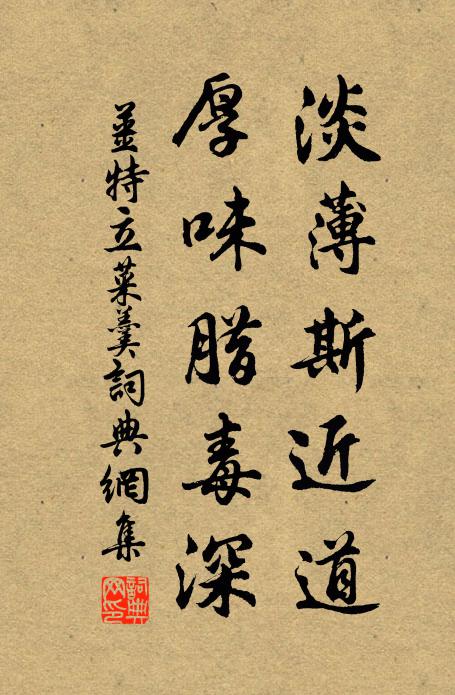 淡薄斯近道
厚味腊毒深
姜特立菜羹詞典網集
詞典网印